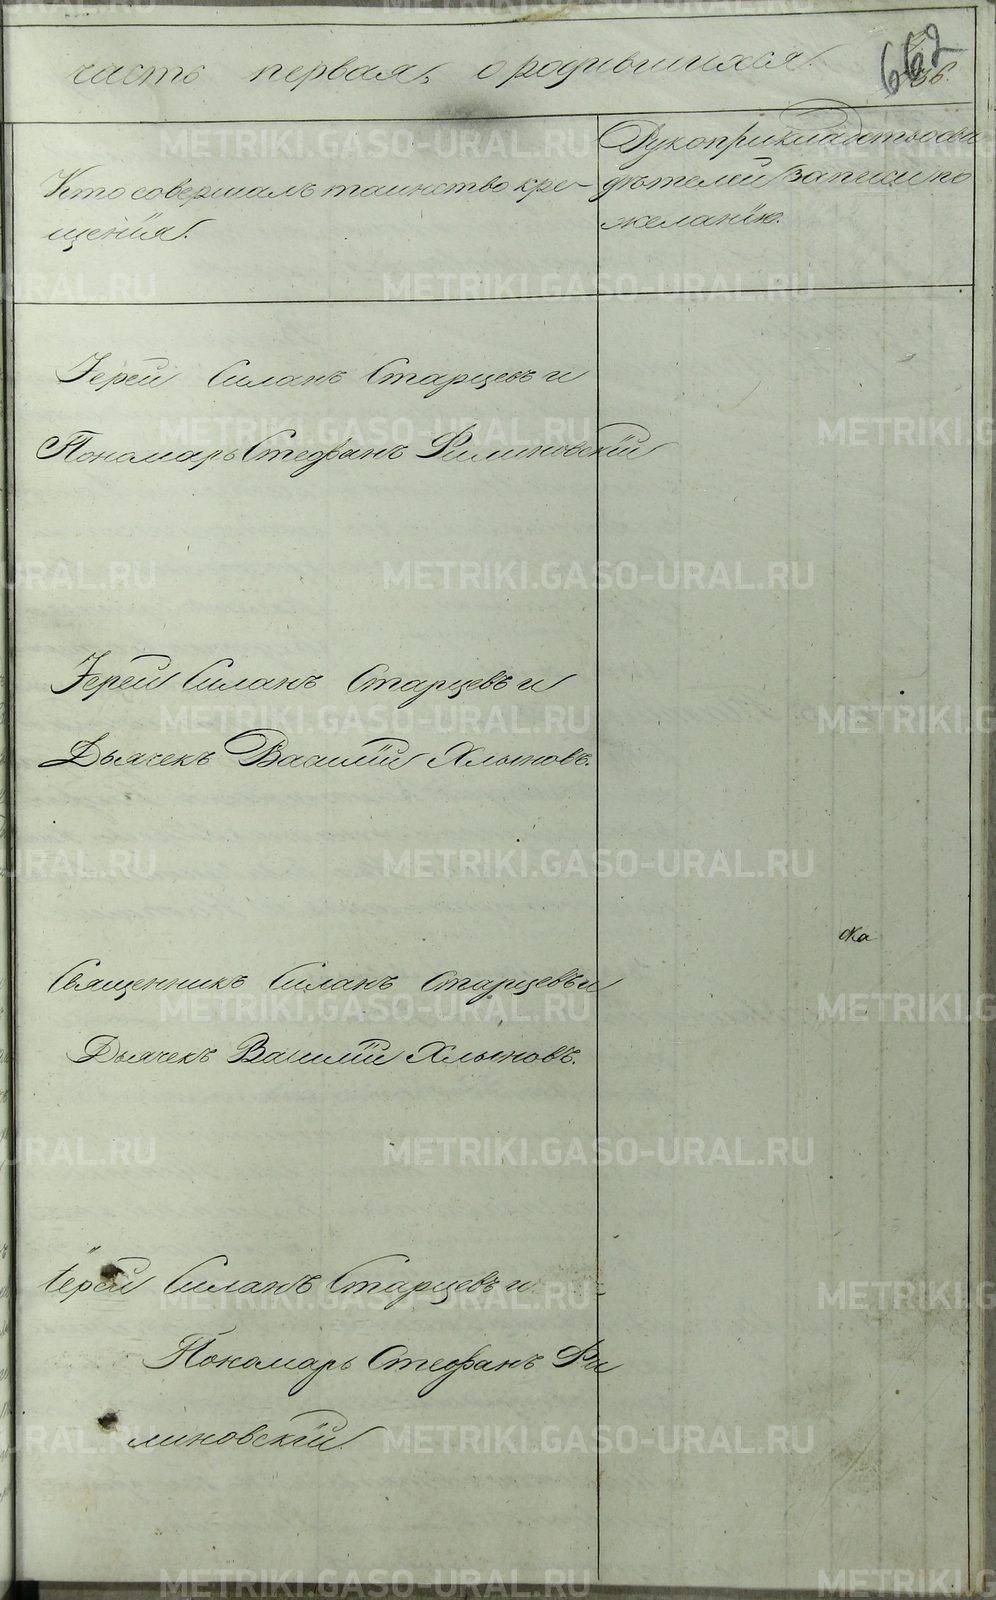 часть первая, о родившихся.
662
36.
Кто совершалъ таинство кре-
щенія.
Рукоприкладство сви
дѣтелей записи по
желанію.
Іерей Силанъ Старцевъ и
Пономарь Стефанъ Филиновскій
Іерей Силанъ Старцевъ и
Дьячекъ Василій Хлыновъ.
Священникъ Силанъ Старцевъ и
Дьячекъ Василій Хлыновъ.
Іерей Силанъ Старцевъ и
Пономарь Стефанъ Фи
линовскій
METRIKI.GASO-URAL.RU